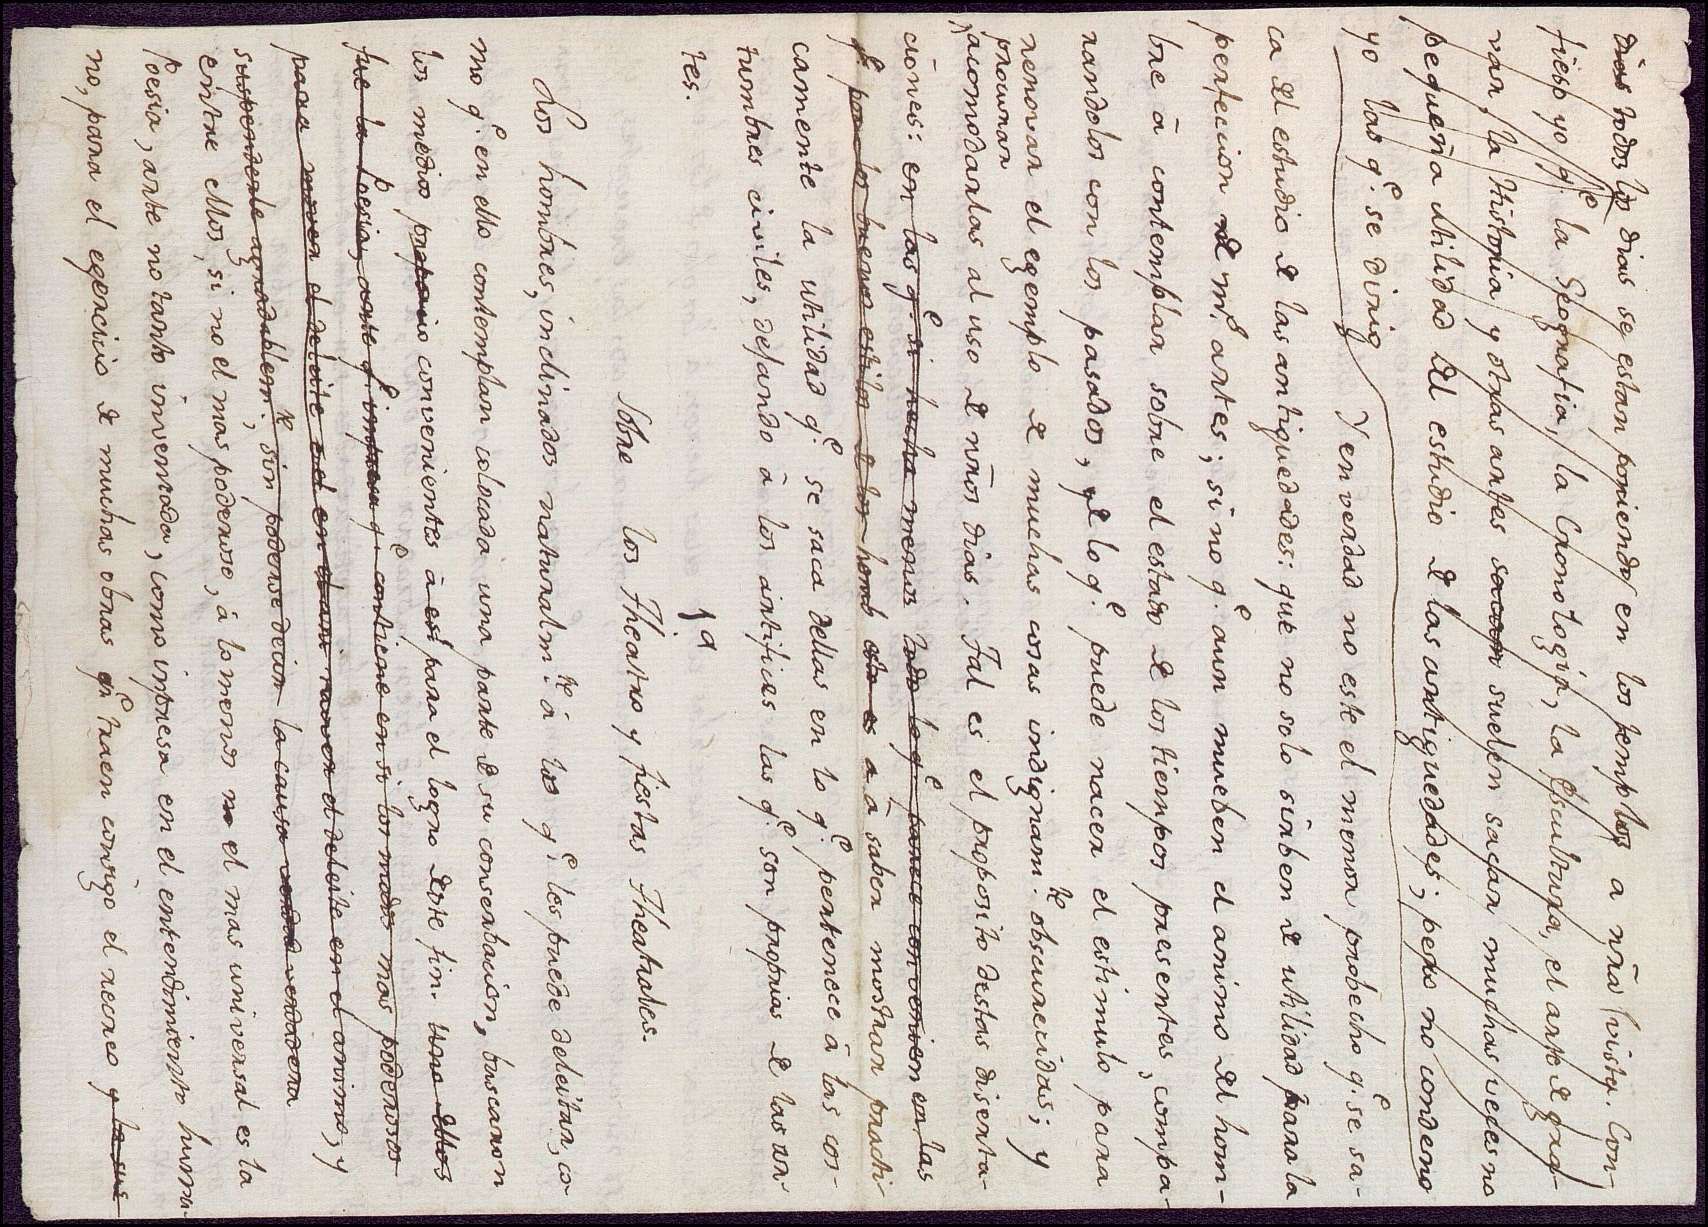 dias todos los dias se estan poniendo en los templos a nr̃a vista. Con-
fieso yo q.e la Geografia, la Cronologia, la Escultura, el arte de gra-
var, la Historia y otras artes sacan suelen sacar muchas veces no
pequeña utilidad del estudio de las antiguedades; pero no condeno
yo las q.e se dirig
Y en verdad no este el menor probecho q.e se sa-
ca del estudio de las antiguedades: que no solo sirben de utilidad para la
perfecion de m.s artes; sino q.e aun mueben el animo del hom-
bre à contemplar sobre el estado de los tiempos presentes, compa-
randolos con los pasados, y de lo q.e puede nacer el estimulo para
renovar el egemplo de muchas cosas indignam.te obscurecidas; y
procurar
acomodarlas al uso de nr̃os dias. Tal es el proposito destas diserta-
ciones: en las q.e si hecha menos todo lo q.e parece convienen en las
q.e por los buenos estilos de los homb esto es a à saber mostrar practi-
camente la utilidad q.e se saca dellas en lo q.e pertenece à las cos-
tumbres civiles, dejando à los artifices las q.e son propias de las ar-
tes.
1a
Sobre los Theatros y fiestas Theatrales.
Los hombres, inclinados naturalm.te à lo q.e les puede deleitar, co-
mo q.e en ello contemplan colocada una parte de su conserbacion, buscaron
los medios convenientes à est para el logro deste fin. Uno dellos
fue la Poesia, arte q.e contiene en si los modos mas poderosos
para mover el deleite en el animo, y
suspenderle agradablem.te, sin poderse decir la causa verdadera
entre ellos, si no el mas poderoso, à lo menos el mas universal es la
Poesia, arte no tanto inventada, como impresa en el entendimiento huma-
no, para el egercicio de muchas obras q.e traen consigo el recreo y la sus